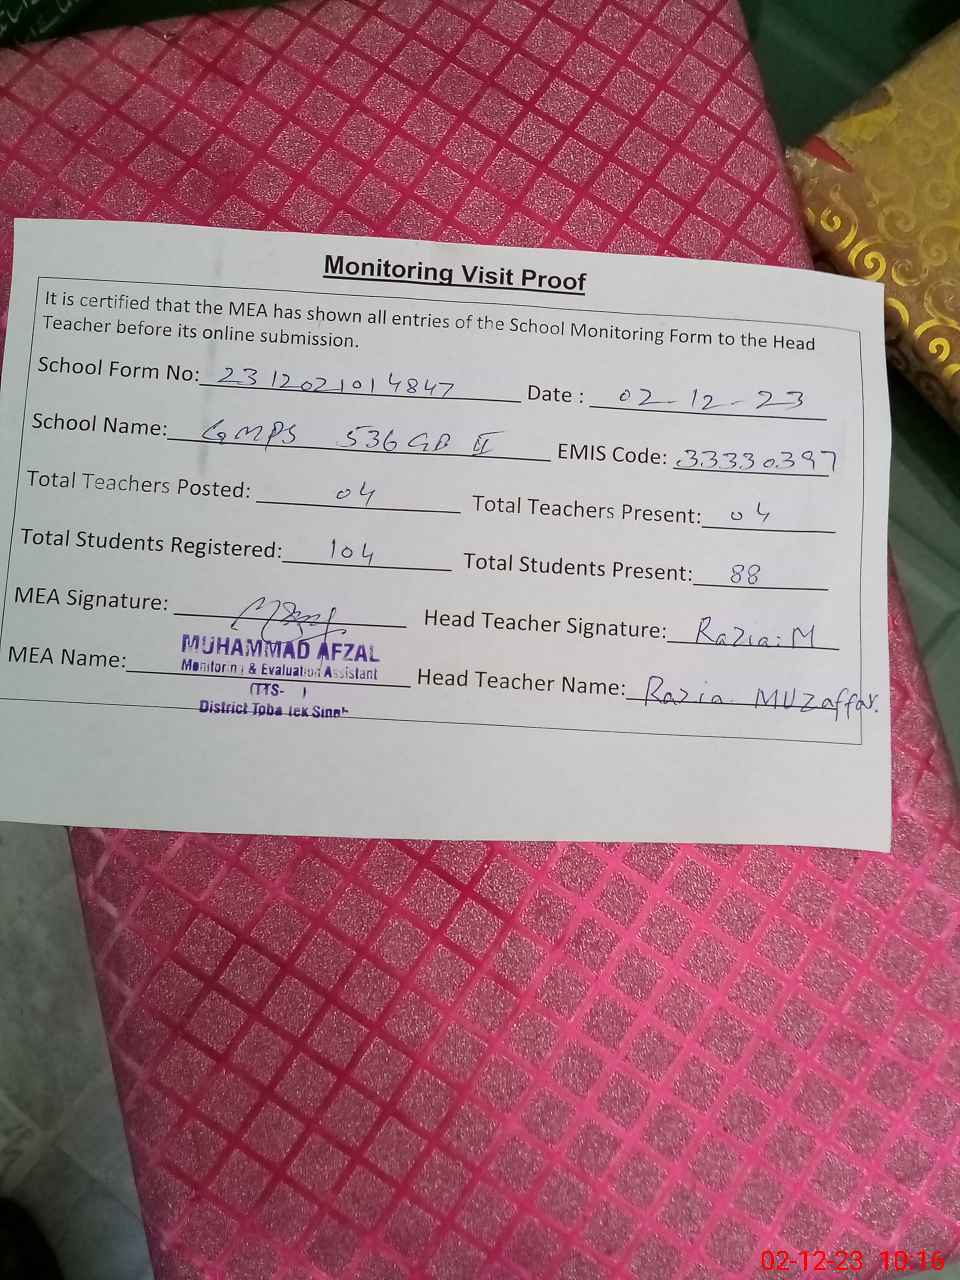 Monitoring Visit Proof
It is certified that the MEA has shown all entries of the School Monitoring Form to the Head
Teacher before its online submission.
School Form No: 2312021014847 Date : 02-12-23
School Name: GMPS 536 GB II EMIS Code: 33330397
Total Teachers Posted: 04 Total Teachers Present: 04
Total Students Registered: 104 Total Students Present: 88
MEA Signature: Head Teacher Signature: Razia.M
MUHAMMAD AFZAL
Monitoring & Evaluation Assistant
(TTS- )
District Toba Tek Singh
MEA Name: Head Teacher Name: Razia Muzaffar.
02-12-23 10:16